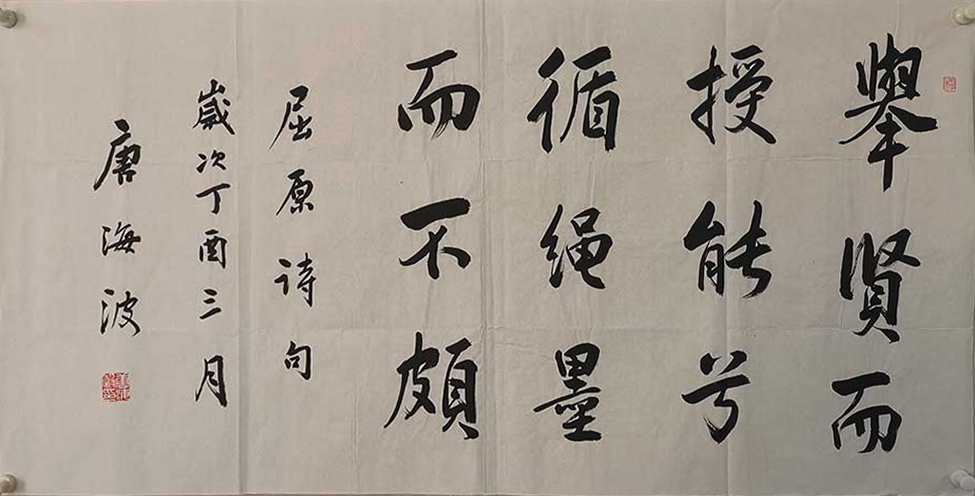 舉贤而
授能兮
循绳墨
而不颇
屈原诗句
岁次丁酉三月
唐海波